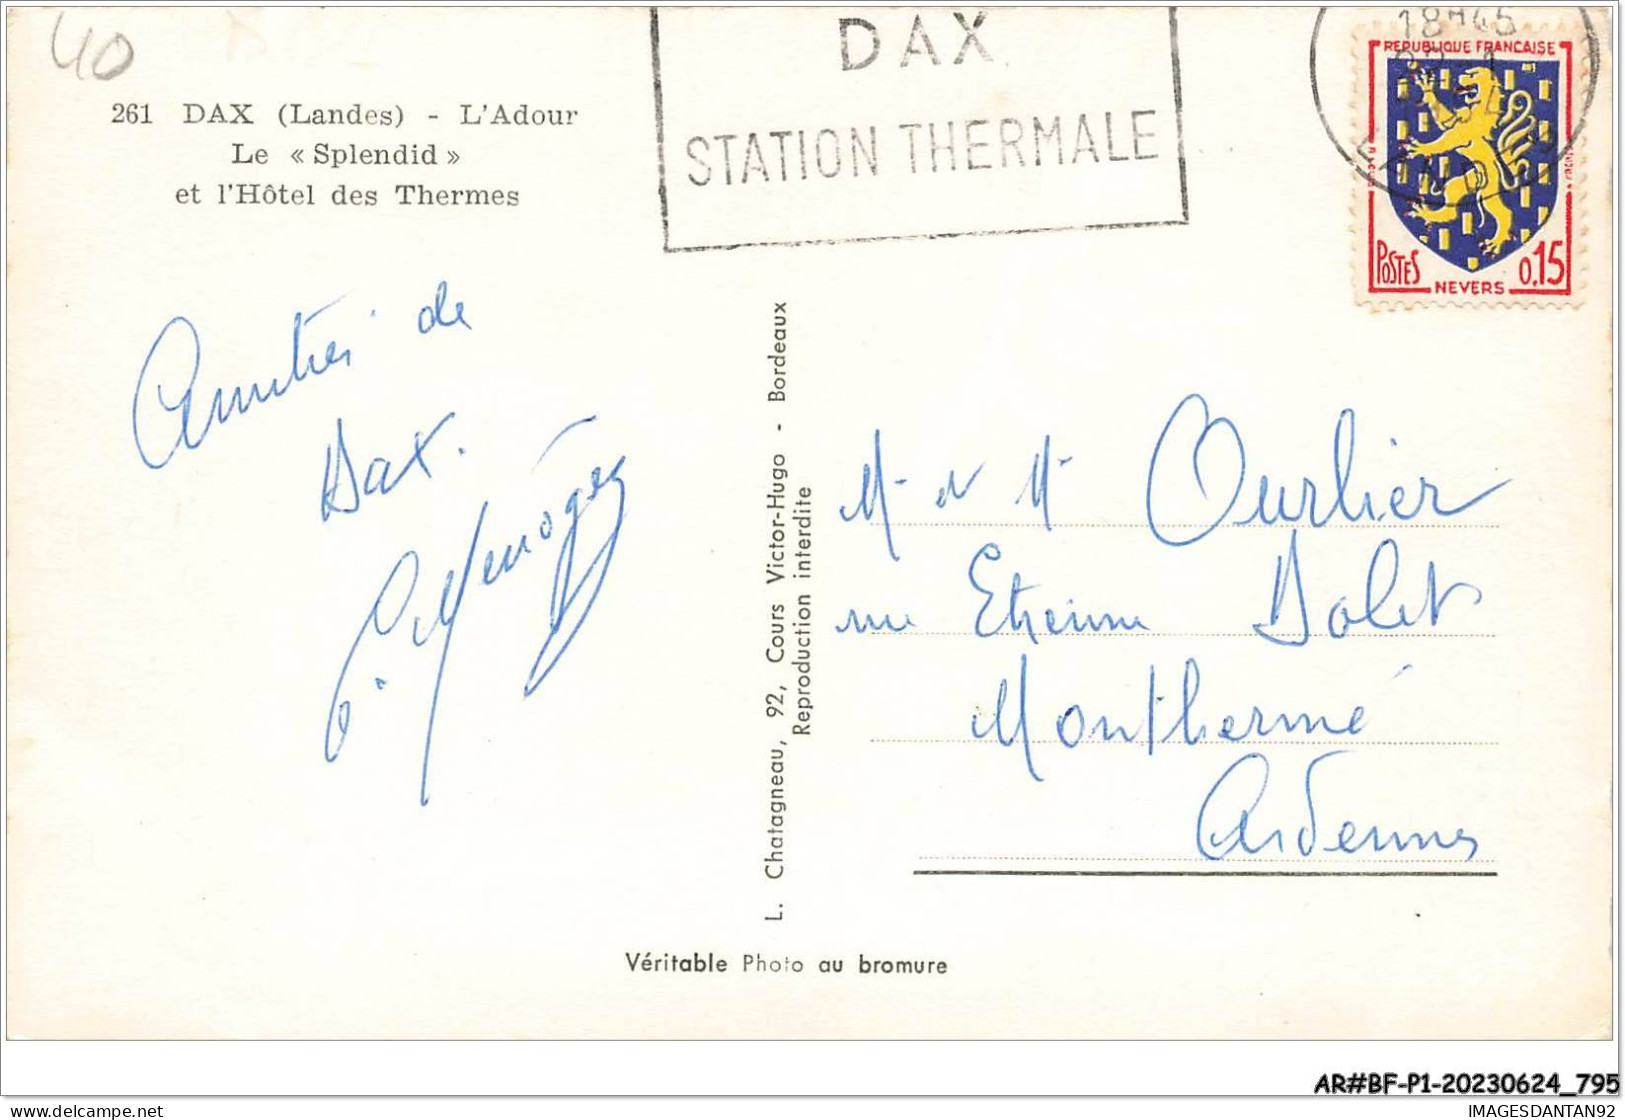 40
261 DAX (Landes) - L'Adour
Le « Splendid »
et l'Hôtel des Thermes
DAX
STATION THERMALE
18 H 45
REPUBLIQUE FRANCAISE
POSTES
0.15
NEVERS
Amitiés de
Dax.
L. Chatagneau, 92, Cours Victor-Hugo - Bordeaux
Reproduction interdite
M. M Ourlier
rue Etienne Dolet
Monthermé
Ardennes
Véritable Photo au bromure
AR#BF-P1-20230624_795
https://www.delcampe.net
IMAGESDANTAN92